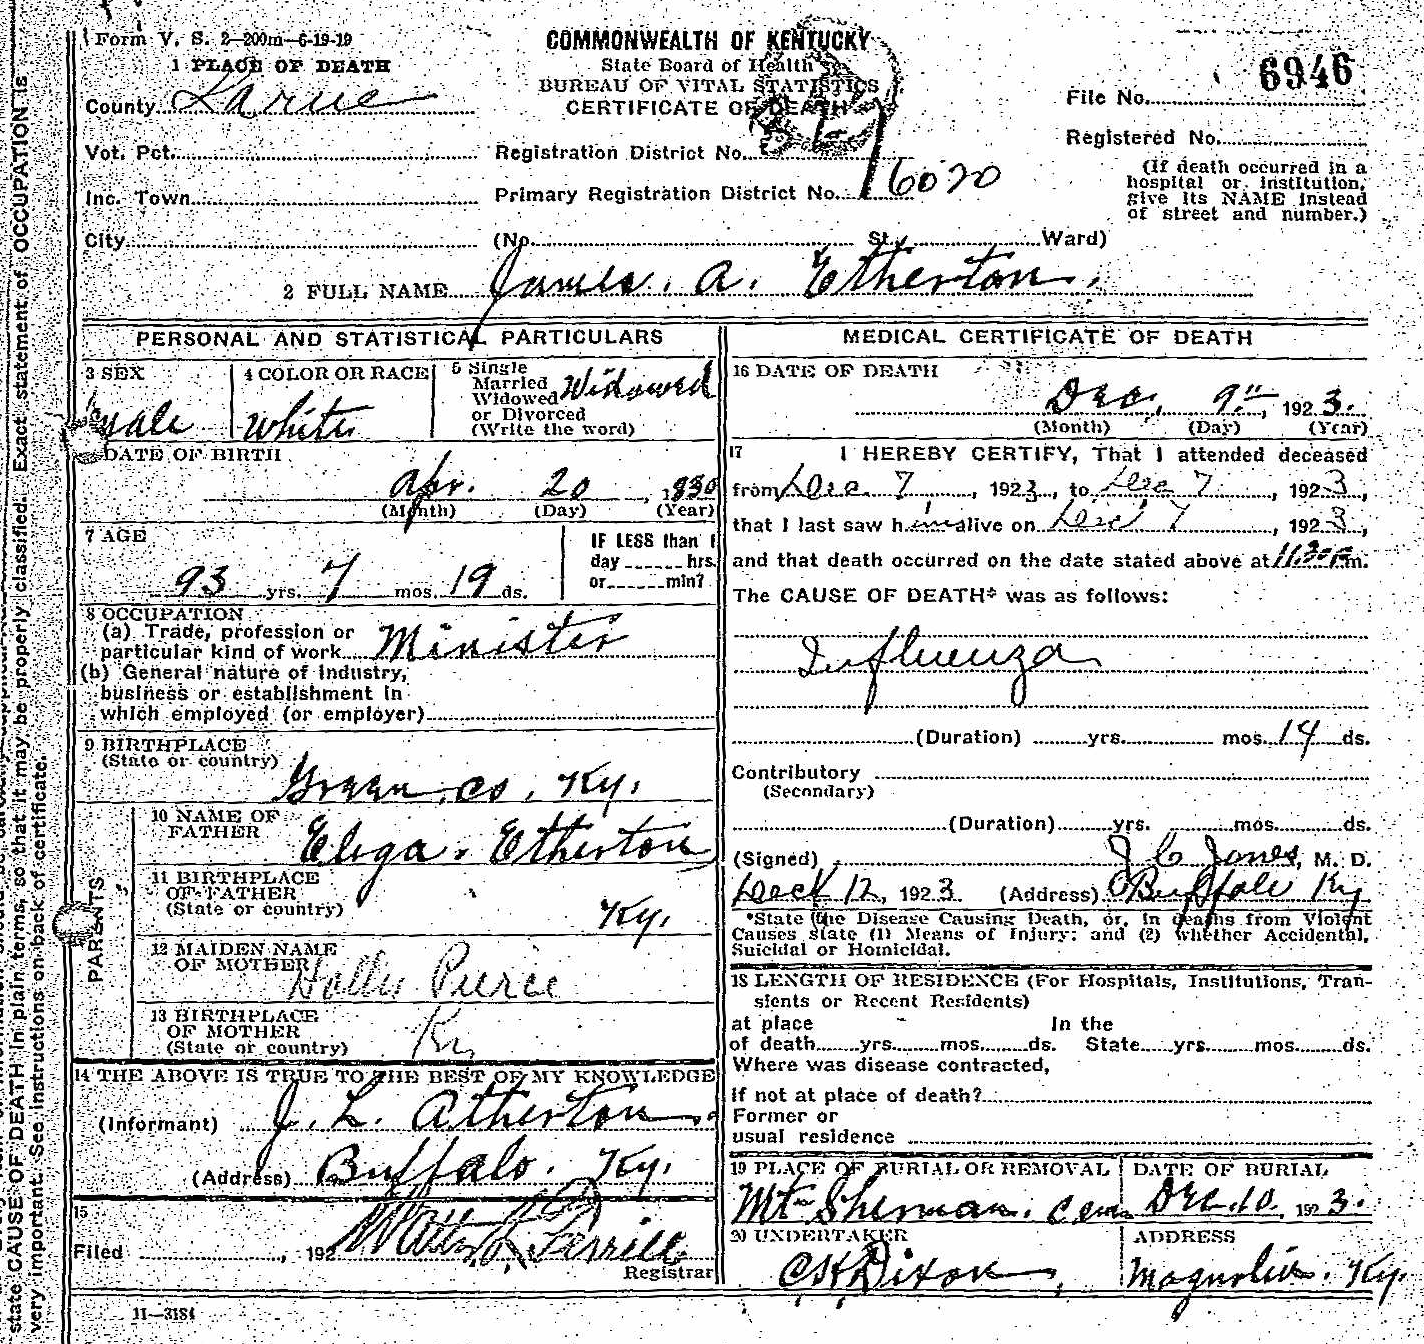 Form V. S. 2—200m—6-19-19
COMMONWEALTH OF KENTUCKY
State Board of Health
BUREAU OF VITAL STATISTICS
CERTIFICATE OF DEATH
6946
File No.
Registered No.
(If death occurred in a
hospital or institution,
give its NAME instead
of street and number.)
1 PLACE OF DEATH
County Larue
Vot. Pct.
Registration District No.
Inc. Town
Primary Registration District No. 6020
City (No. St., Ward)
2 FULL NAME James. A. Etherton.
PERSONAL AND STATISTICAL PARTICULARS
3 SEX male
4 COLOR OR RACE white
5 Single
Married
Widowed
or Divorced
(Write the word)
Widowed
DATE OF BIRTH
Apr. 20, 1830
(Month) (Day) (Year)
7 AGE
93 yrs. 7 mos. 19 ds.
IF LESS than 1
day hrs.
or min?
8 OCCUPATION
(a) Trade, profession or
particular kind of work Minister
(b) General nature of Industry,
business or establishment in
which employed (or employer)
9 BIRTHPLACE
(State or country)
Green co, Ky.
PARENTS
10 NAME OF
FATHER
Eliga. Etherton
11 BIRTHPLACE
OF FATHER
(State or country)
Ky.
12 MAIDEN NAME
OF MOTHER
Pierce
13 BIRTHPLACE
OF MOTHER
(State or country)
Ky
14 THE ABOVE IS TRUE TO THE BEST OF MY KNOWLEDGE
(Informant) J. L. Atherton
(Address) Buffalo. Ky.
15
Filed , 192
Registrar
11—3184
MEDICAL CERTIFICATE OF DEATH
16 DATE OF DEATH
Dec, 9th, 1923.
(Month) (Day) (Year)
17 I HEREBY CERTIFY, That I attended deceased
from Dec. 7, 1923, to Dec 7, 1923,
that I last saw him alive on Dec 7, 1923,
and that death occurred on the date stated above at 11.30 P m.
The CAUSE OF DEATH* was as follows:
Influenza
(Duration) yrs. mos. 14 ds.
Contributory
(Secondary)
(Duration) yrs. mos. ds.
(Signed) J C Jones, M. D.
12, 1923 (Address) Buffalo Ky
*State the Disease Causing Death, or, in deaths from Violent
Causes state (1) Means of Injury; and (2) whether Accidental,
Suicidal or Homicidal.
18 LENGTH OF RESIDENCE (For Hospitals, Institutions, Tran-
sients or Recent Residents)
at place In the
of death yrs. mos. ds. State yrs. mos. ds.
Where was disease contracted,
If not at place of death?
Former or
usual residence
19 PLACE OF BURIAL OR REMOVAL
Mt Sherman. Cem
DATE OF BURIAL
Dec. 10. 1923.
20 UNDERTAKER
Dixon
ADDRESS
Magnolia. Ky.
state CAUSE OF DEATH in plain terms, so that it may be properly classified. Exact statement of OCCUPATION is
very important. See instructions on back of certificate.